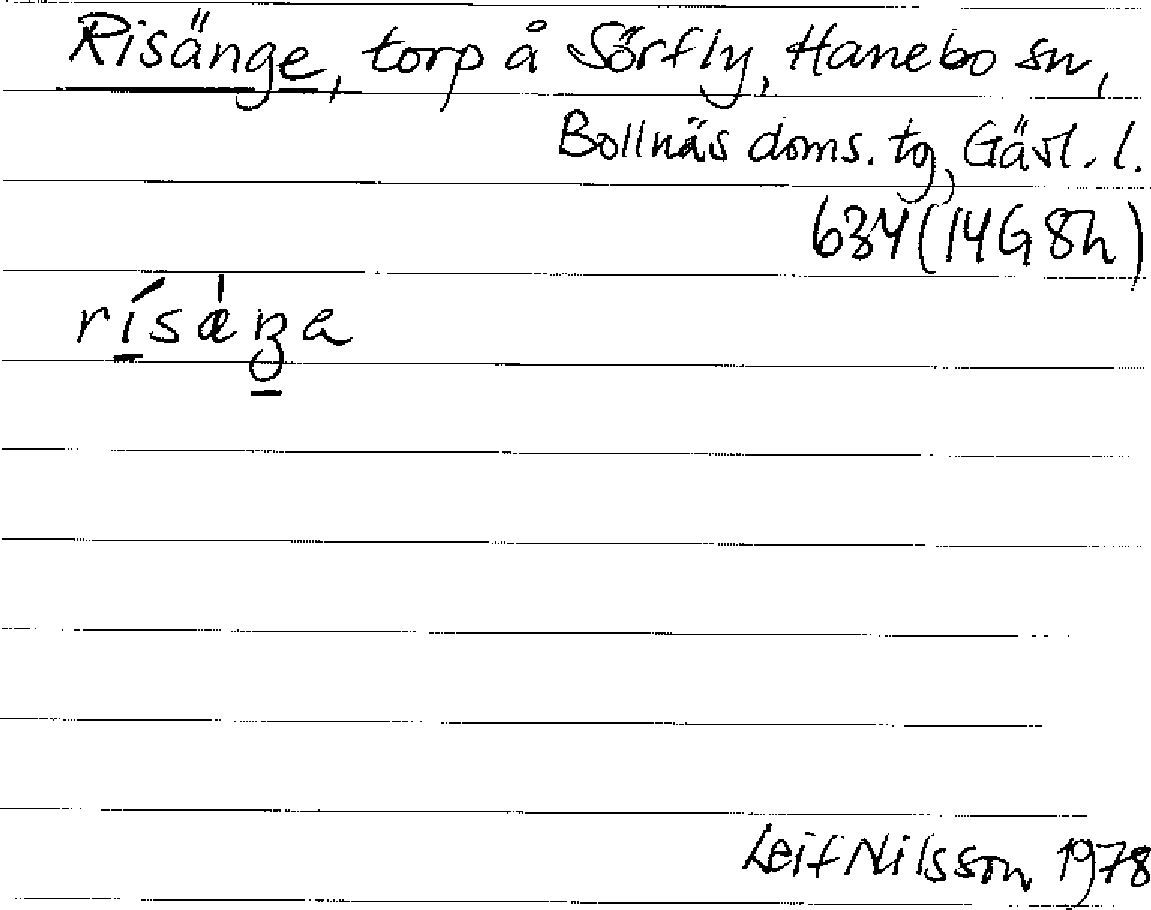 Risänge, torp å Sörfly, Hanebo sn,
Bollnäs doms. tg, Gävl. l.
634 (14G 8h)
rísæ̍ŋa
Leif Nilsson 1978